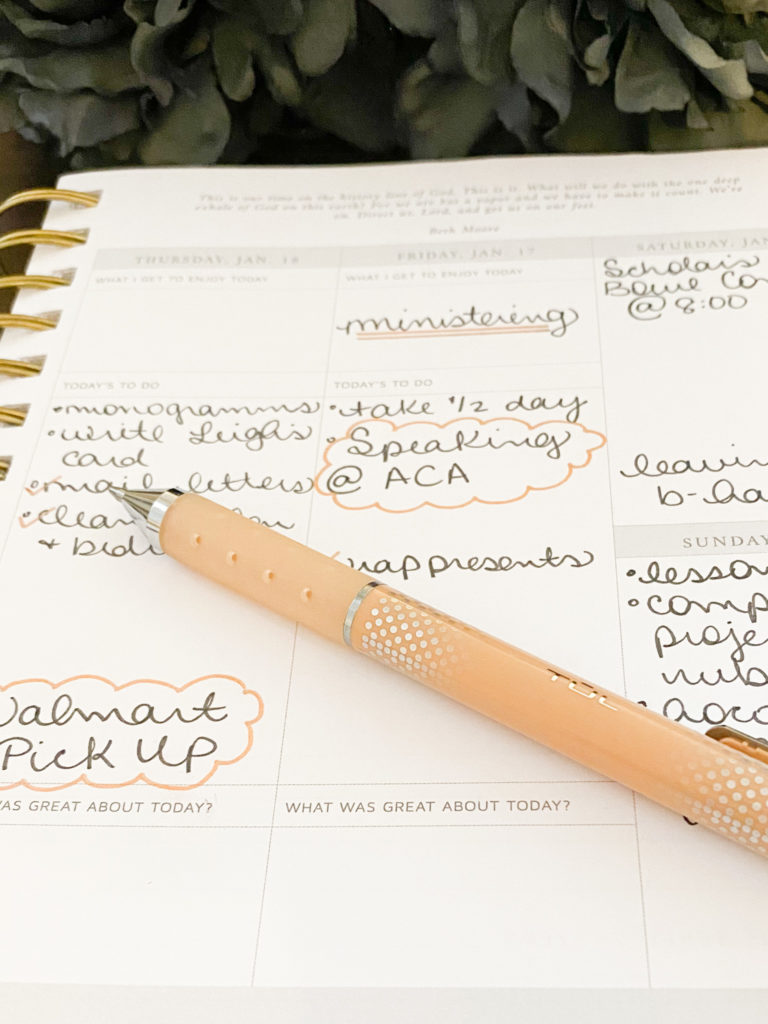 This is our time on the history line of God. This is it. What will we do with the one deep
exhale of God on this earth? For we are but a vapor and we have to make it count. We're
on. Direct us, Lord, and get us on our feet.
Beth Moore
THURSDAY, JAN. 16
WHAT I GET TO ENJOY TODAY
TODAY'S TO DO
• monograms
• write Leigh's
card
mail letters
clean
+
Walmart
Pick UP
WAS GREAT ABOUT TODAY?
FRIDAY, JAN. 17
WHAT I GET TO ENJOY TODAY
ministering
TODAY'S TO DO
• take 1/2 day
• Speaking
@ ACA
presents
WHAT WAS GREAT ABOUT TODAY?
SATURDAY, JAN
Scholars
@ 8:00
SUNDAY